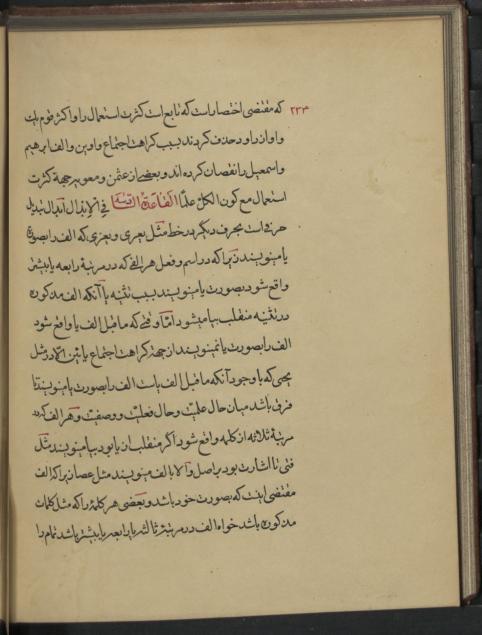 ۲۳۴ که مقتضی اختصار است که تابع است کثرت استعمال را و اکثر قوم یک
واو از داود حذف کردند بسبب کراهت اجتماع واوین و الف ابرهیم
و اسمعیل را نقصان کرده اند و بعضے از عثمن و معویه بجهة کثرت
استعمال مع کون الکل علما القاعدة فی الابدال ابدال تبدیل
حرفی است بحرف دیگر در خط مثل یعزی و یعزی که الف را بصورت
یا مینویسند زیرا که در اسم و فعل هر الفے که در مرتبهٔ رابعه یا بیشتر
واقع شود بصورت یا مینویسند بسبب تثنیه یا آنکه الف مذکوره
در تثنیه منقلب بیا میشود اما وقتی که ماقبل الف یا واقع شود
الف را بصورت یا نمینویسند از جهة کراهت اجتماع یائین الا در مثل
یحیی که با وجود آنکه ماقبل الف یاست الف را بصورت یا مینویسند تا
فرق باشد میان حال علمیت و حال فعلیت و وصفیت و هر الف که در
مرتبهٔ ثلاثه از کلمه واقع شود اگر منقلب از یا بود بیا مینویسند مثل
فتی تا اشارت بود بر اصل و الا بالف مینویسند مثل عصا زیرا که الف
مقتضی اینست که بصورت خود باشد و بعضی هر کلمهٔ را که مثل کلمات
مذکوره باشد خواه الف در مرتبهٔ ثالثه یا رابعه یا بیشتر باشد تمام را